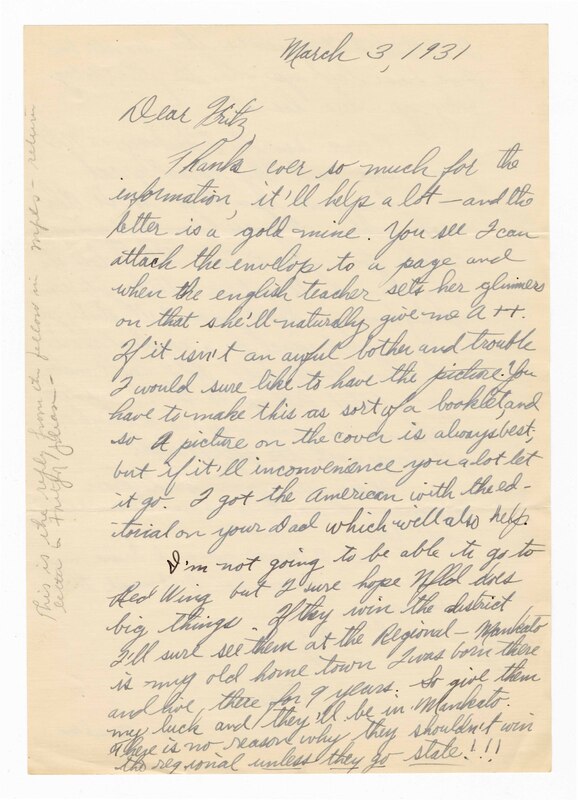 March 3, 1931
Dear Fritz,
Thanks ever so much for the
information, it'll help a lot — and the
letter is a gold mine. You see I can
attach the envelop to a page and
when the english teacher sets her glimmers
on that she'll naturally give me A++.
If it isn't an awful bother and trouble
I would sure like to have the picture. You
have to make this as sort of a booklet and
so a picture on the cover is always best,
but if it'll inconvenience you a lot let
it go. I got the American with the ed-
itorial on your Dad which will also help.
I'm not going to be able to go to
Red Wing but I sure hope Nfld does
big things. If they win the district
I'll sure see them at the Regional — Mankato
is my old home town I was born there
and live there for 9 years. So give them
my luck and they'll be in Mankato.
There is no reason why they shouldn't win
the regional unless they go state!!!
This is the reply from the fellow in Mpls — return
letter to